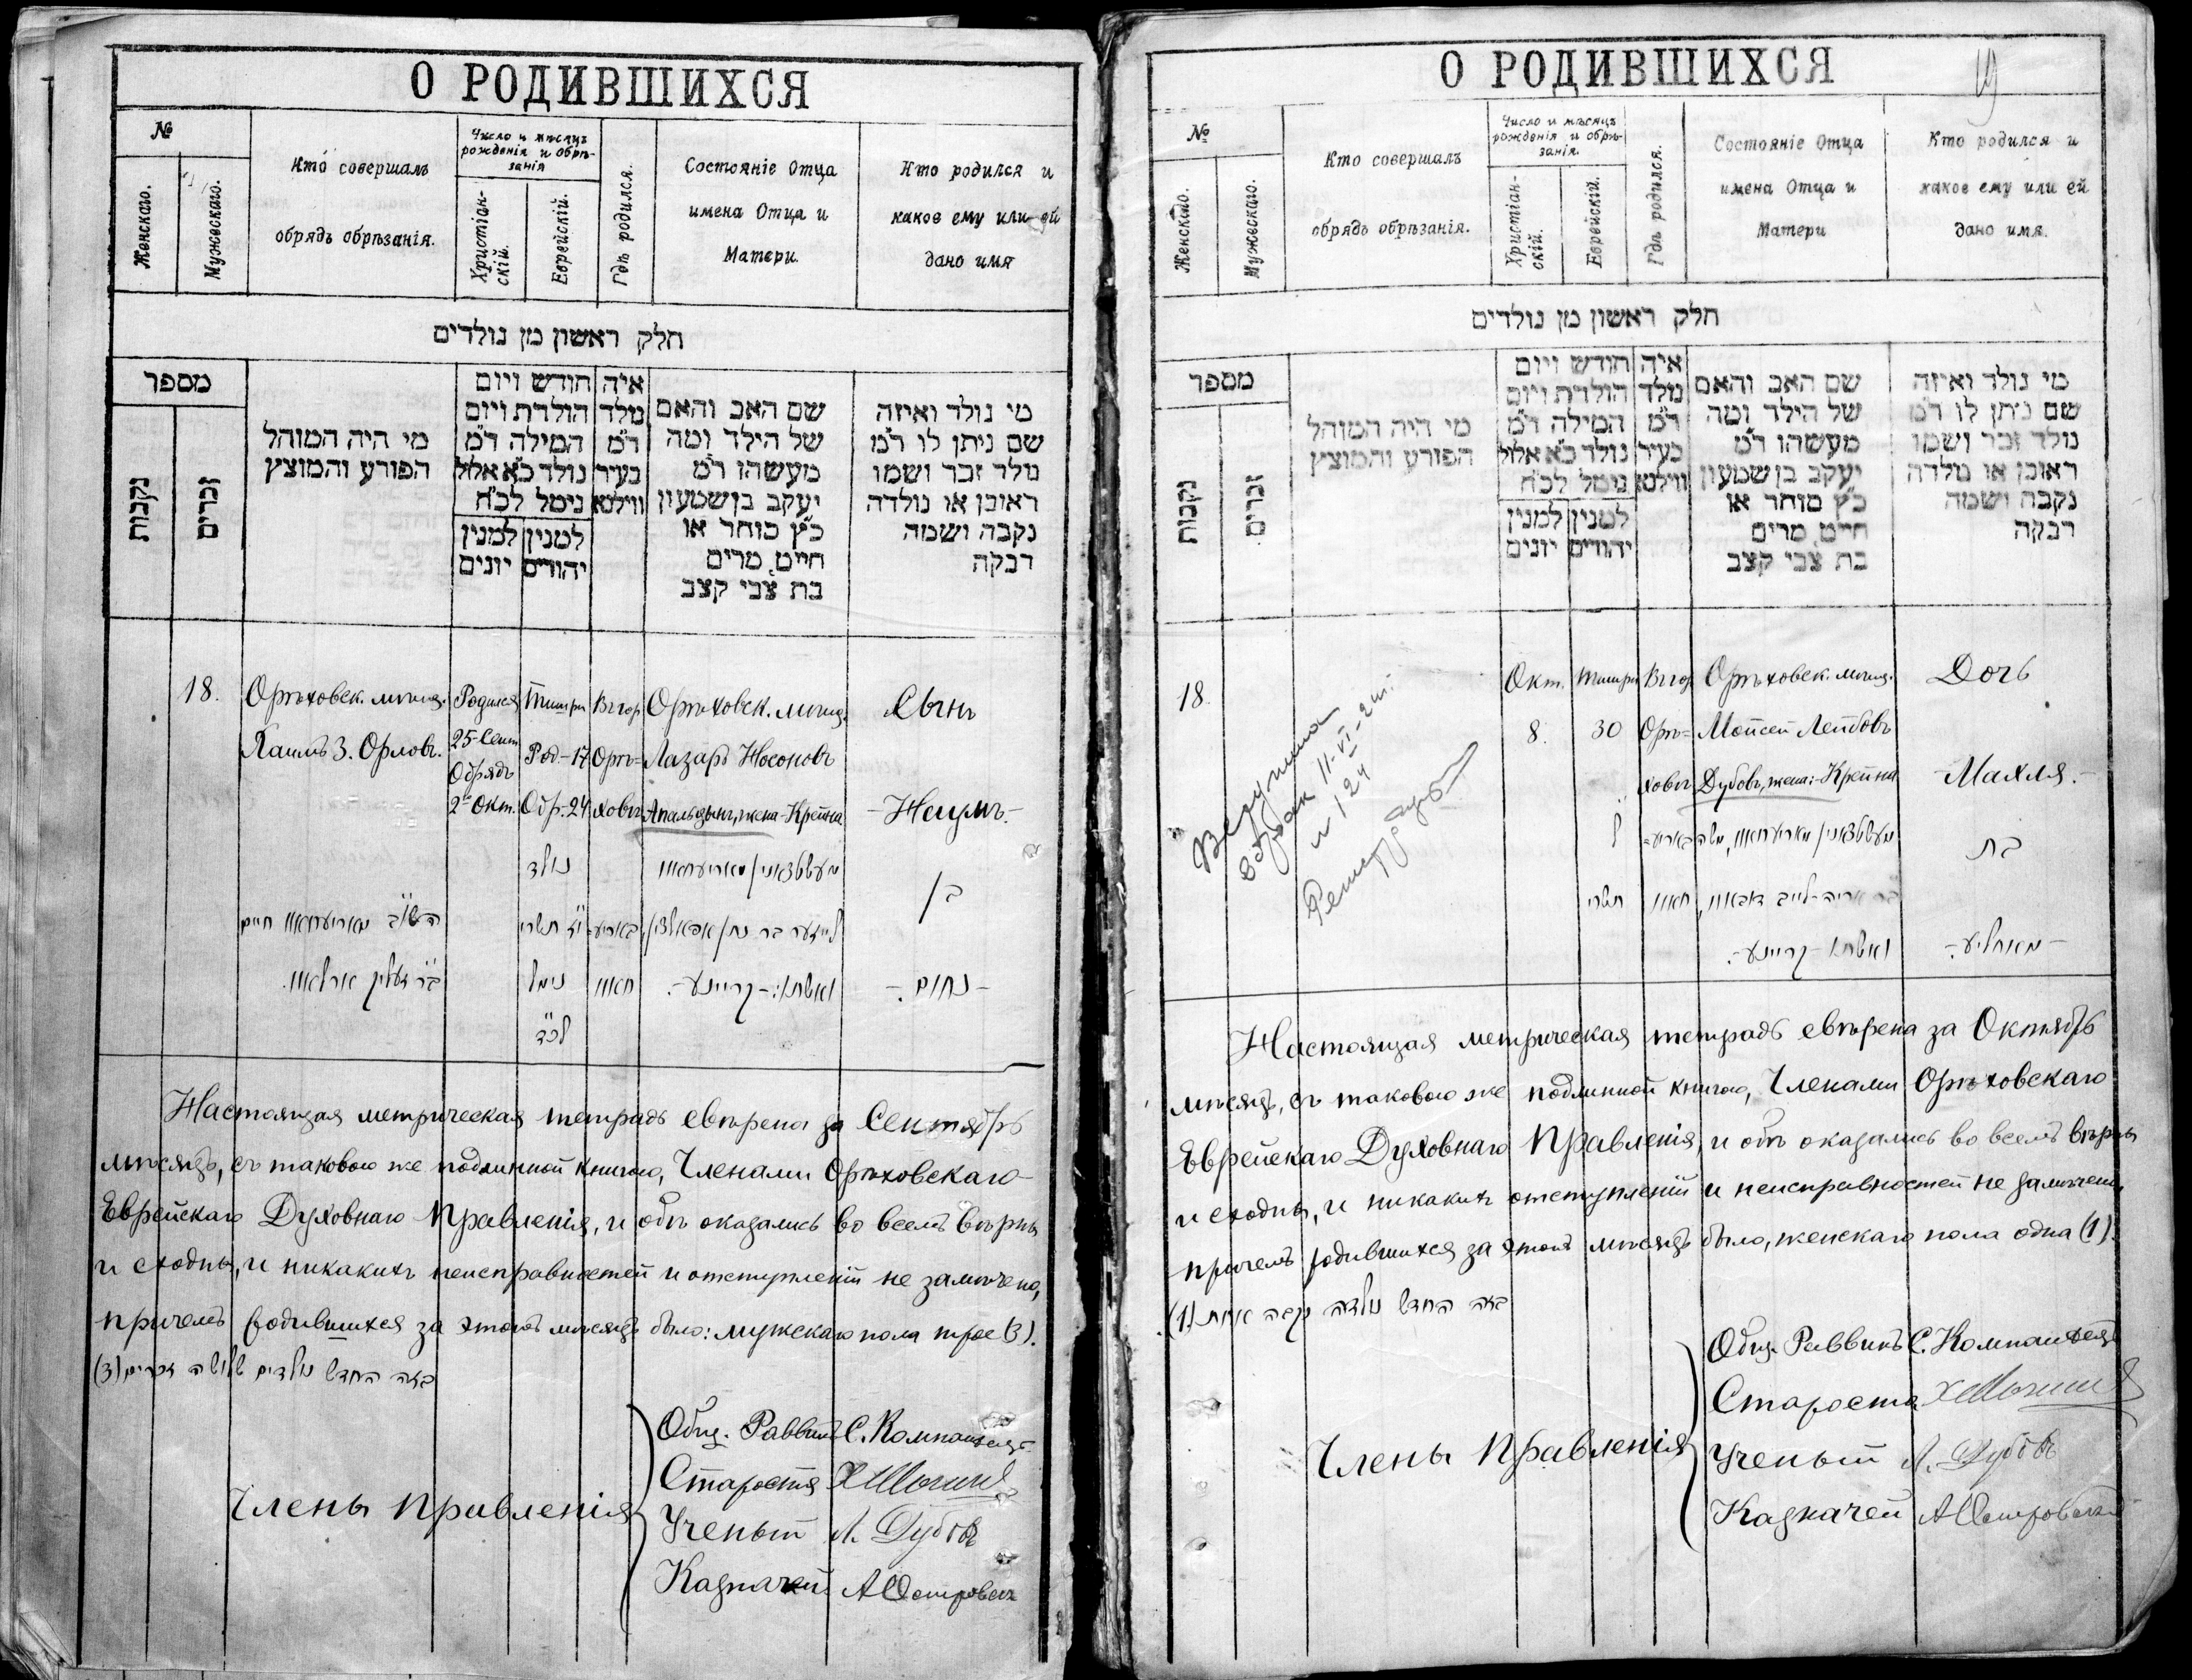 О РОДИВШИХСЯ
№
Женскаго.
Мужескаго.
Кто совершалъ
обрядъ обрѣзанія.
Число и мѣсяцъ
рожденія и обрѣ-
занія
Христіан-
скій.
Еврейскій.
Гдѣ родился.
Состояніе Отца
имена Отца и
Матери.
Кто родился и
какое ему или ей
дано имя
חלק ראשון מן נולדים
מספר
נקבות
זכרים
מי היה המוהל
הפורע והמוצץ
חודש ויום
הולדת ויום
המילה ד״מ
נולד כ״א אלול
נימל לכ״ח
למנין למנין
יהודים יונים
איה
נולד
ד״מ
בעיר
ווילנא
שם האב והאם
של הילד ומה
מעשהו ד״מ
יעקב בן שמעון
כ״ץ סוחר או
חייט, מרים
בת צבי קצב
מי נולד ואיזה
שם ניתן לו ד״מ
נולד זכר ושמו
ראובן או נולדה
נקבה ושמה
רבקה
18.
Орѣховск. мѣщ.
Хаимъ З. Орловъ.
Родился
25 Сент
Обрядъ
2 Окт.
Тишри
Род.-17
Обр.-24
Въ гор
Орѣ-
ховѣ
Орѣховск. мѣщ.
Лазарь Носоновъ
жена-Крейна
Сынъ
-Наумъ.-
נולד
י״ז תשרי
נימל
לכ״ד
ואשתו:- קריינע-.
בן
-נחום.-
Настоящая метрическая тетрадь свѣрена за Сентябрь
мѣсяцъ, съ таковою же подлинной книгою, Членами Орѣховскаго
Еврейскаго Духовнаго Правленія, и обѣ оказались во всемъ вѣрны
и сходны, и никакихъ неисправностей и отступленій не замѣчено,
причемъ родившихся за этотъ мѣсяцъ было: мужскаго пола трое (3).
בזה החדש נולדים שלושה זכרים (3)
Члены Правленія
Общ. Раввинъ С. Компанеецъ
Староста
Ученый Л. Дубовъ
Казначей А Островск
О РОДИВШИХСЯ
19
№
Женскаго.
Мужескаго.
Кто совершалъ
обрядъ обрѣзанія.
Число и мѣсяцъ
рожденія и обрѣ-
занія.
Христіан-
скій.
Еврейскій.
Гдѣ родился.
Состояніе Отца
имена Отца и
Матери
Кто родился и
какое ему или ей
дано имя.
חלק ראשון מן נולדים
מספר
נקבות
זכרים
מי היה המוהל
הפורע והמוצץ
חודש ויום
הולדת ויום
המילה ד״מ
נולד כ״א אלול
נימל לכ״ח
למנין למנין
יהודים יונים
איה
נולד
ד״מ
בעיר
ווילנא
שם האב והאם
של הילד ומה
מעשהו ד״מ
יעקב בן שמעון
כ״ץ סוחר או
חייט, מרים
בת צבי קצב
מי נולד ואיזה
שם ניתן לו ד״מ
נולד זכר ושמו
ראובן או נולדה
נקבה ושמה
רבקה
18.
Вступила
в брак 11-VI-
№ 124
Окт.
8.
Тишри
30
ל
תשרי
Въ гор
Орѣ-
ховѣ
Орѣховск. мѣщ.
Мойсей Лейбовъ
Дубовъ, жена:-Крейна
ואשתו:- קריינע-.
Дочь
-Махля.-
בת
-מאחליע-.
Настоящая метрическая тетрадь свѣрена за Октябрь
мѣсяцъ, съ таковою же подлинной книгою, Членами Орѣховскаго
Еврейскаго Духовнаго Правленія, и обѣ оказались во всемъ вѣрны
и сходны, и никакихъ отступленій и неисправностей не замѣчено,
причемъ родившихся за этотъ мѣсяцъ было, женскаго пола одна (1).
בזה החדש נולדה נקבה אחת (1)
Члены Правленія
Общ. Раввинъ С. Компанеецъ
Староста
Ученый Л. Дубовъ
Казначей А Островск